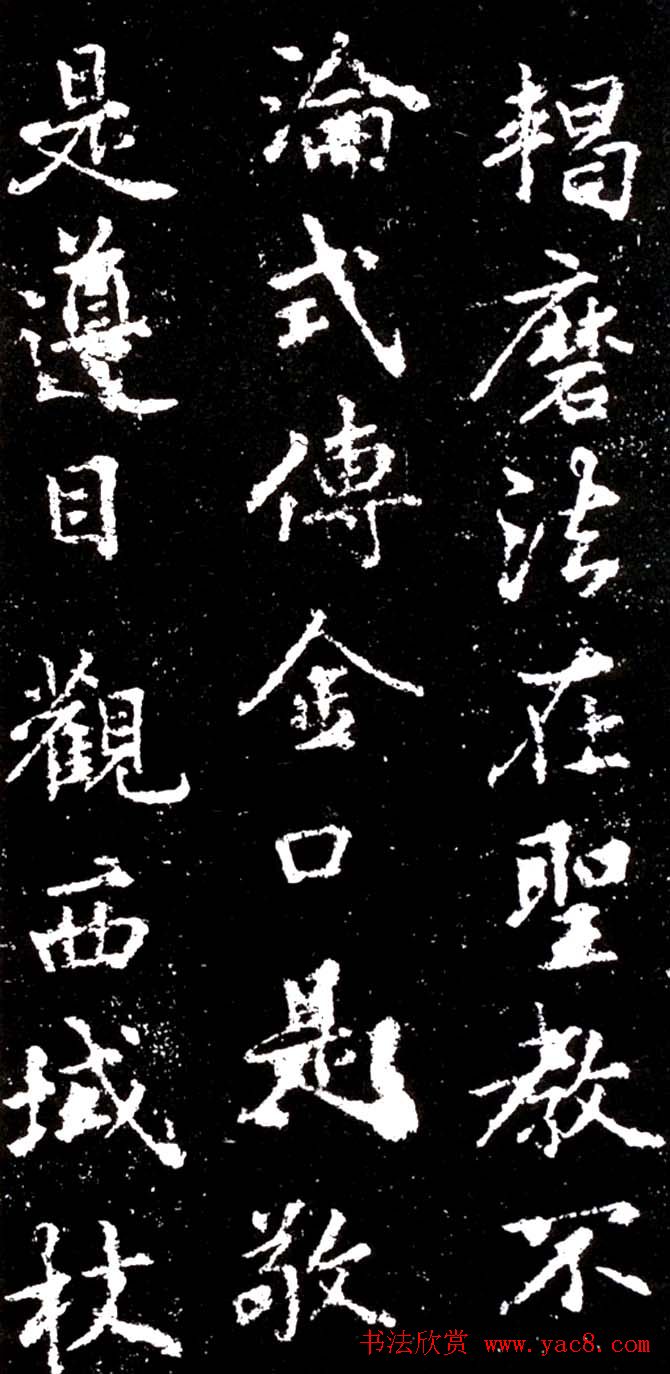 鞨磨法在聖教不
淪式傳金口是敬
是遵目觀西域杖
书法欣赏 www.yac8.com